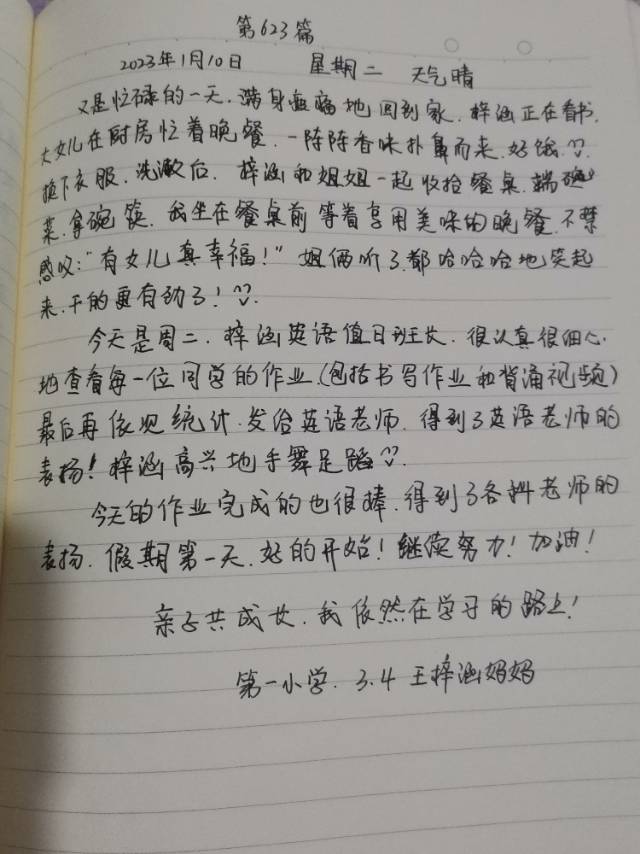 第623篇
2023年1月10日 星期二 天气晴
又是忙碌的一天.满身疲惫地回到家.梓涵正在看书.
大女儿在厨房忙着晚餐.一阵阵香味扑鼻而来.好饿.
换下衣服.洗漱后.梓涵和姐姐一起收拾餐桌.端碗
菜.拿碗筷.我坐在餐桌前等着享用美味的晚餐.不禁
感叹:“有女儿真幸福!”姐俩听了都哈哈哈地笑起
来.干的更有劲了!
今天是周二.梓涵英语值日班长.很认真很细心.
地查看每一位同学的作业.(包括书写作业和背诵视频)
最后再依次统计.发给英语老师.得到了英语老师的
表扬!梓涵高兴地手舞足蹈.
今天的作业完成的也很棒.得到了各科老师的
表扬.假期第一天.好的开始!继续努力!加油!
亲子共成长.我依然在学习的路上!
第一小学.3.4 王梓涵妈妈